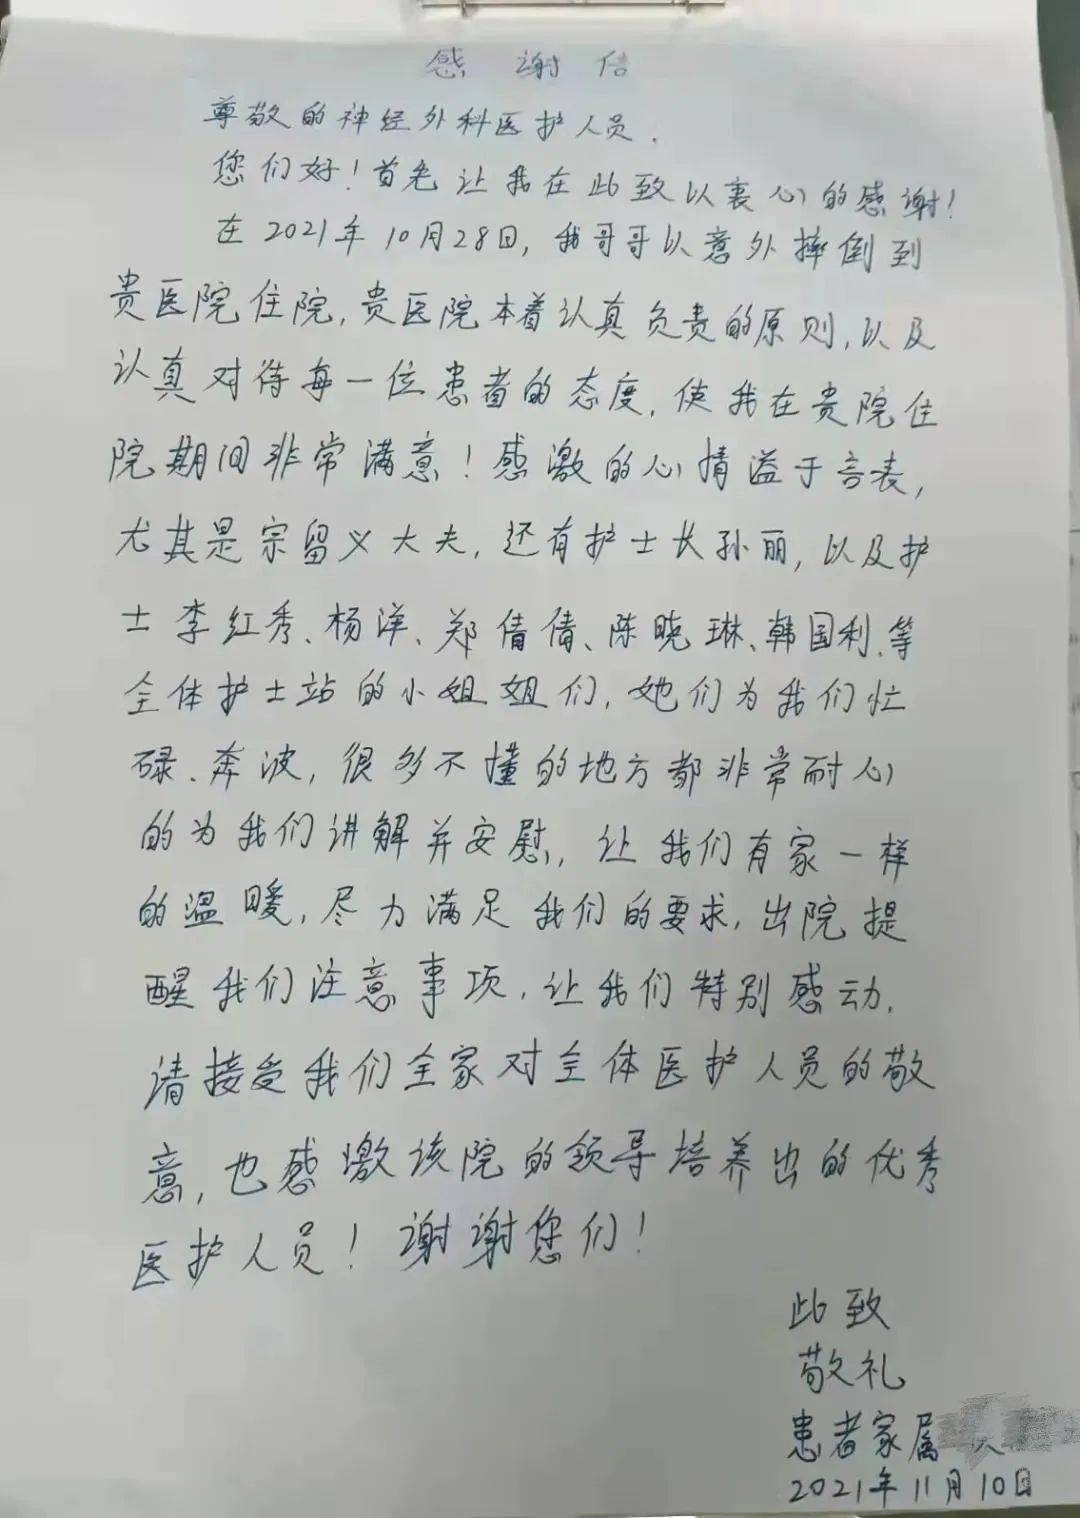 感谢信
尊敬的神经外科医护人员.
您们好!首先让我在此致以衷心的感谢!
在2021年10月28日,我哥哥以意外摔倒到
贵医院住院,贵医院本着认真负责的原则,以及
认真对待每一位患者的态度,使我在贵院住
院期间非常满意!感激的心情溢于言表,
尤其是宗留义大夫,还有护士长孙丽,以及护
士李红秀、杨洋、郑倩倩、陈晓琳、韩国利、等
全体护士站的小姐姐们,她们为我们忙
碌、奔波,很多不懂的地方都非常耐心
的为我们讲解并安慰,让我们有家一样
的温暖,尽力满足我们的要求,出院提
醒我们注意事项,让我们特别感动.
请接受我们全家对全体医护人员的敬
意,也感激该院的领导培养出的优秀
医护人员!谢谢您们!
此致
敬礼
患者家属
2021年11月10日